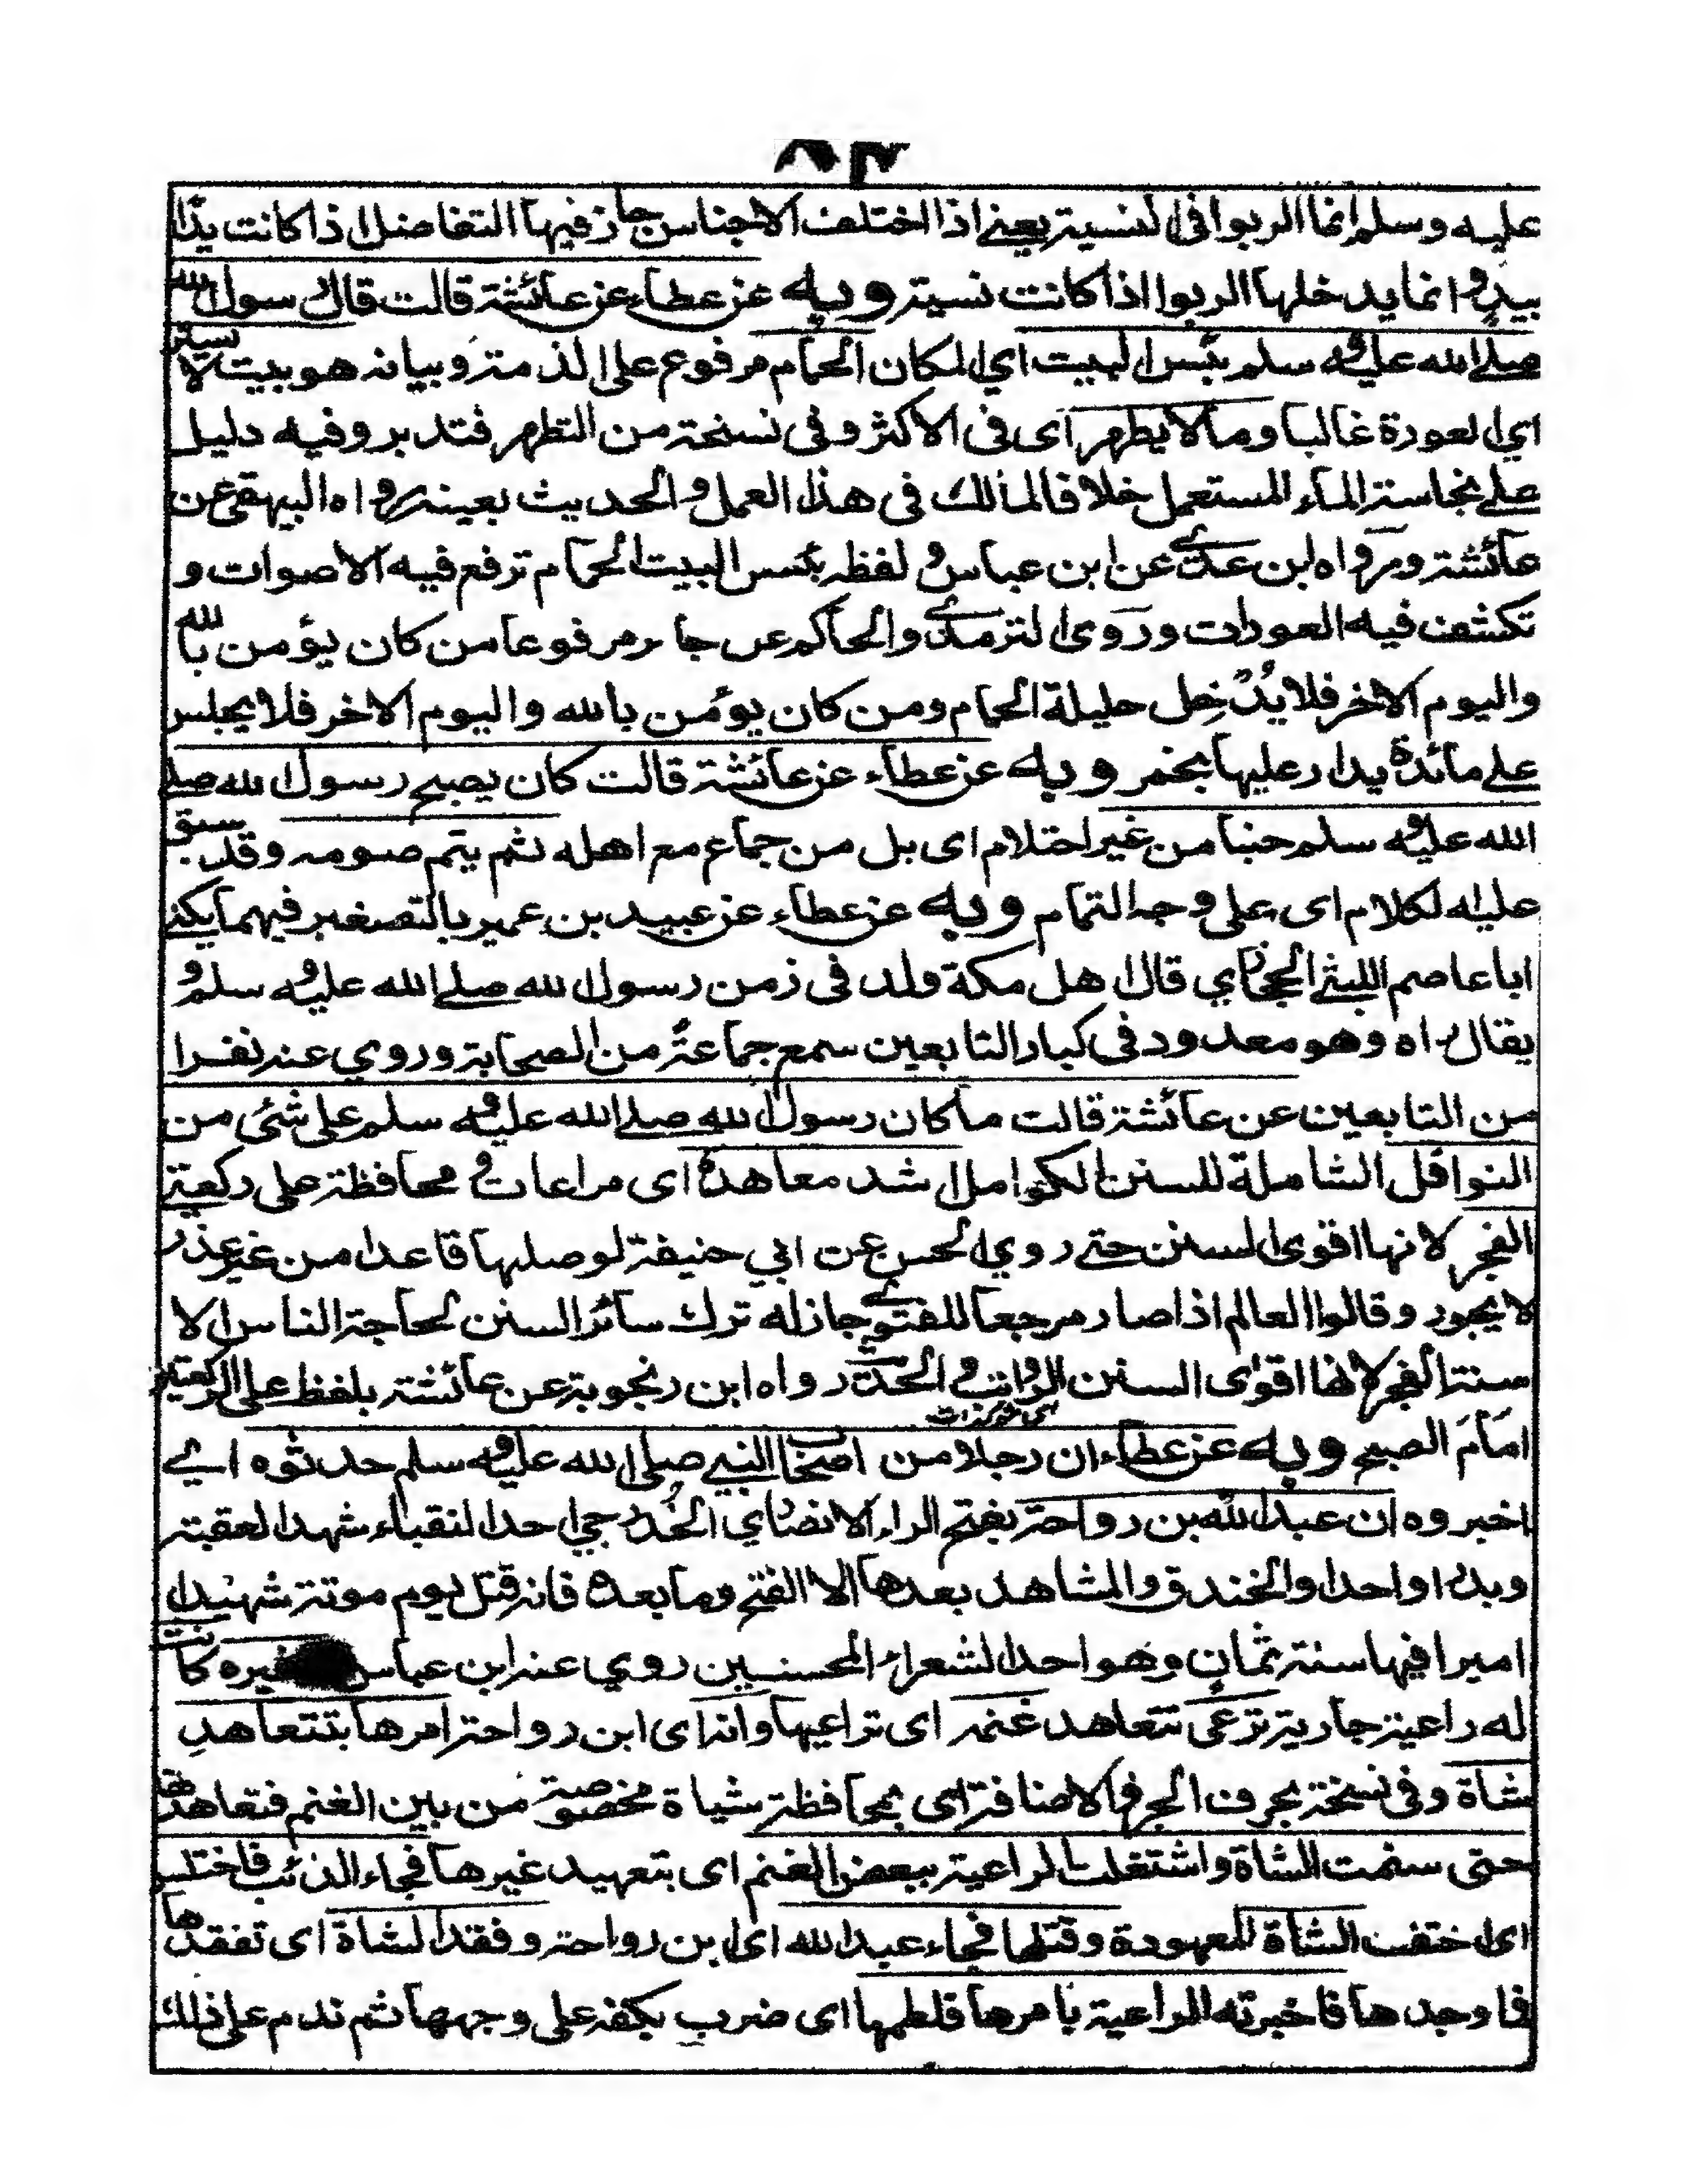 ٨٣
عليه وسلم انما الربوا في النسية يعني اذا اختلفت الاجناس جاز فيها التفاضل اذا كانت يدًا
بيد وانما يدخلها الربوا اذا كانت نسية وبه عن عطاء عن عائشة قالت قال رسول الله
صلے الله عليه وسلم بئس البيت اي المكان الحمام مرفوع على الذمة وبيانه هو بيت لا يستر
اي العورة غالبا وماء لا يطهر اى فى الاكثر وفى نسخة من التطهر فتدبر وفيه دليل
علے نجاسة الماء المستعمل خلافا لمالك فى هذا العمل والحديث بعينه رواه البيهقي عن
عائشة ورواه ابن عدي عن ابن عباس ولفظه بئس البيت الحمام ترفع فيه الاصوات و
تكشف فيه العورات وروى الترمذي والحاكم عن جابر مرفوعا من كان يؤمن بالله
واليوم الاخر فلا يُدْخِل حليلة الحمام ومن كان يؤمن بالله واليوم الاخر فلا يجلس
علے مائدة يدار عليها بخمر وبه عن عطاء عن عائشة قالت كان يصبح رسول الله صلے
الله عليه وسلم جنبا من غير احتلام اى بل من جماع مع اهله ثم يتم صومه وقد سبق
عليه الكلام اى على وجه التمام وبه عن عطاء عن عبيد بن عمير بالتصغير فيهما يكنے
ابا عاصم الليثي الحجازي قال اهل مكة ولد فى زمن رسول الله صلے الله عليه وسلم و
يقال راه وهو معدود فى كبار التابعين سمع جماعة من الصحابة وروي عنه نفرا
من التابعين عن عائشة قالت ما كان رسول الله صلے الله عليه وسلم على شئى من
النوافل الشاملة للسنن الكوامل اشد معاهدة اى مراعات و محافظة على ركعتے
الفجر لانها اقوى السنن حتے روي الحسن عن ابي حنيفة لو صليها قاعدا من غير عذر
لا يجوز وقالوا العالم اذا صار مرجعا للفتوي جاز له ترك سائر السنن لحاجة الناس الا
سنة الفجر لانها اقوى السنن الرواتب والحديث رواه ابن زنجوية عن عائشة بلفظ على الركعتين
امام الصبح وبه عن عطاء ان رجلا من اصحاب النبي صلى الله عليه وسلم حدثوه اي
اخبروه ان عبد الله بن رواحة بفتح الراء الانصاري الخزرجي احد النقباء شهد العقبة
وبدرا واحدا والخندق والمشاهد بعدها الا الفتح وما بعده فانه قتل يوم موتة شهيدا
اميرا فيها سنة ثمان وهو احد الشعراء المحسنين روي عنه ابن عباس وغيره كانت
له راعية جارية ترعى تتعاهد غنمه اى تراعيها وانه اى ابن رواحة امرها بتتعاهد
شاة وفى نسخة بحرف الجر فالاضافة اى بمحافظة شياة مخصوصة من بين الغنم فتعاهدها
حتى سمنت الشاة واشتغلت الراعية ببعض الغنم اى بتعهيد غيرها فجاء الذئب فاختلس
اى اختفت الشاة المعهودة وقتلها فجاء عبد الله اى ابن رواحة وفقد الشاة اى تفقدها
فما وجدها فاخبرته الراعية بامرها فلطمها اى ضرب بكفه على وجهها ثم ندم على ذلك